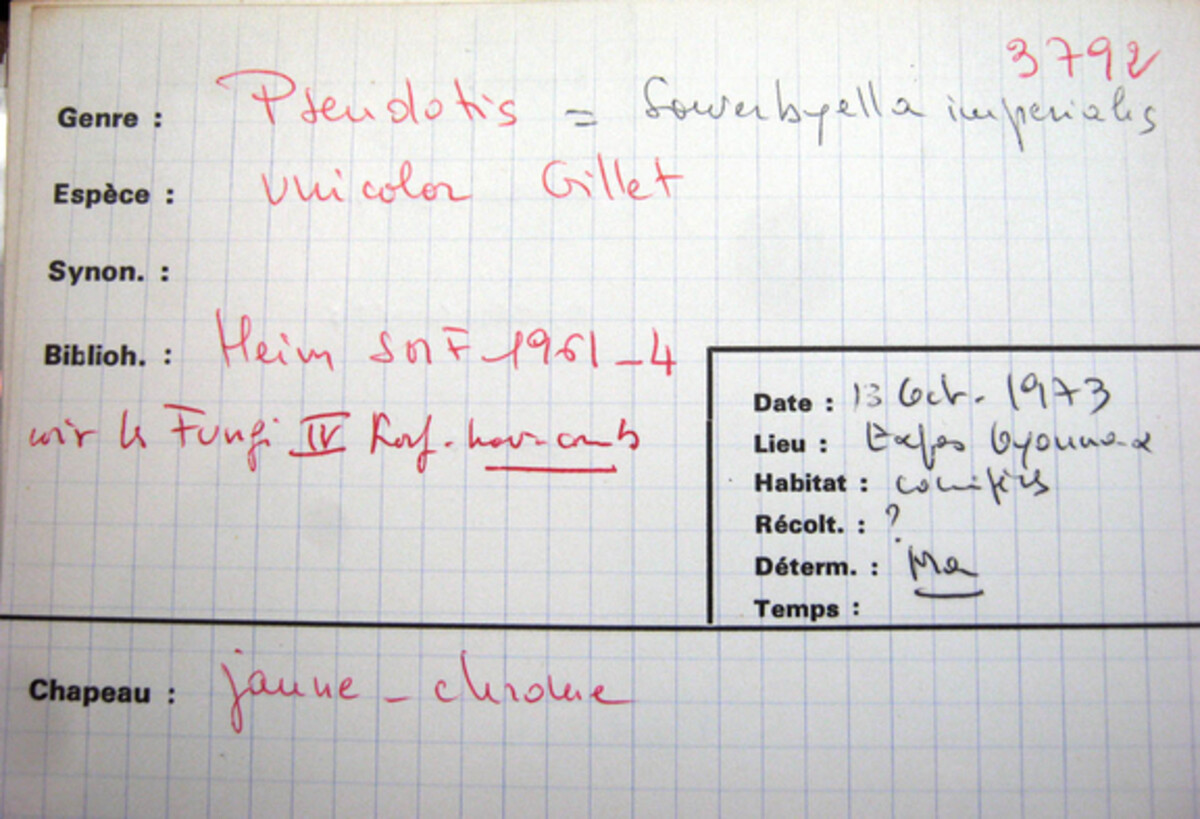 3792
Genre : Pseudotis = Sowerbyella imperialis
Espèce : unicolor Gillet
Synon. :
Biblioh. : Heim SMF 1961 - 4
voir Fungi IV Korf. nov-comb
Date : 13 Oct. 1973
Lieu : Expos Oyonnax
Habitat : conifères
Récolt. : ?
Déterm. : Ma
Temps :
Chapeau : jaune - chrome